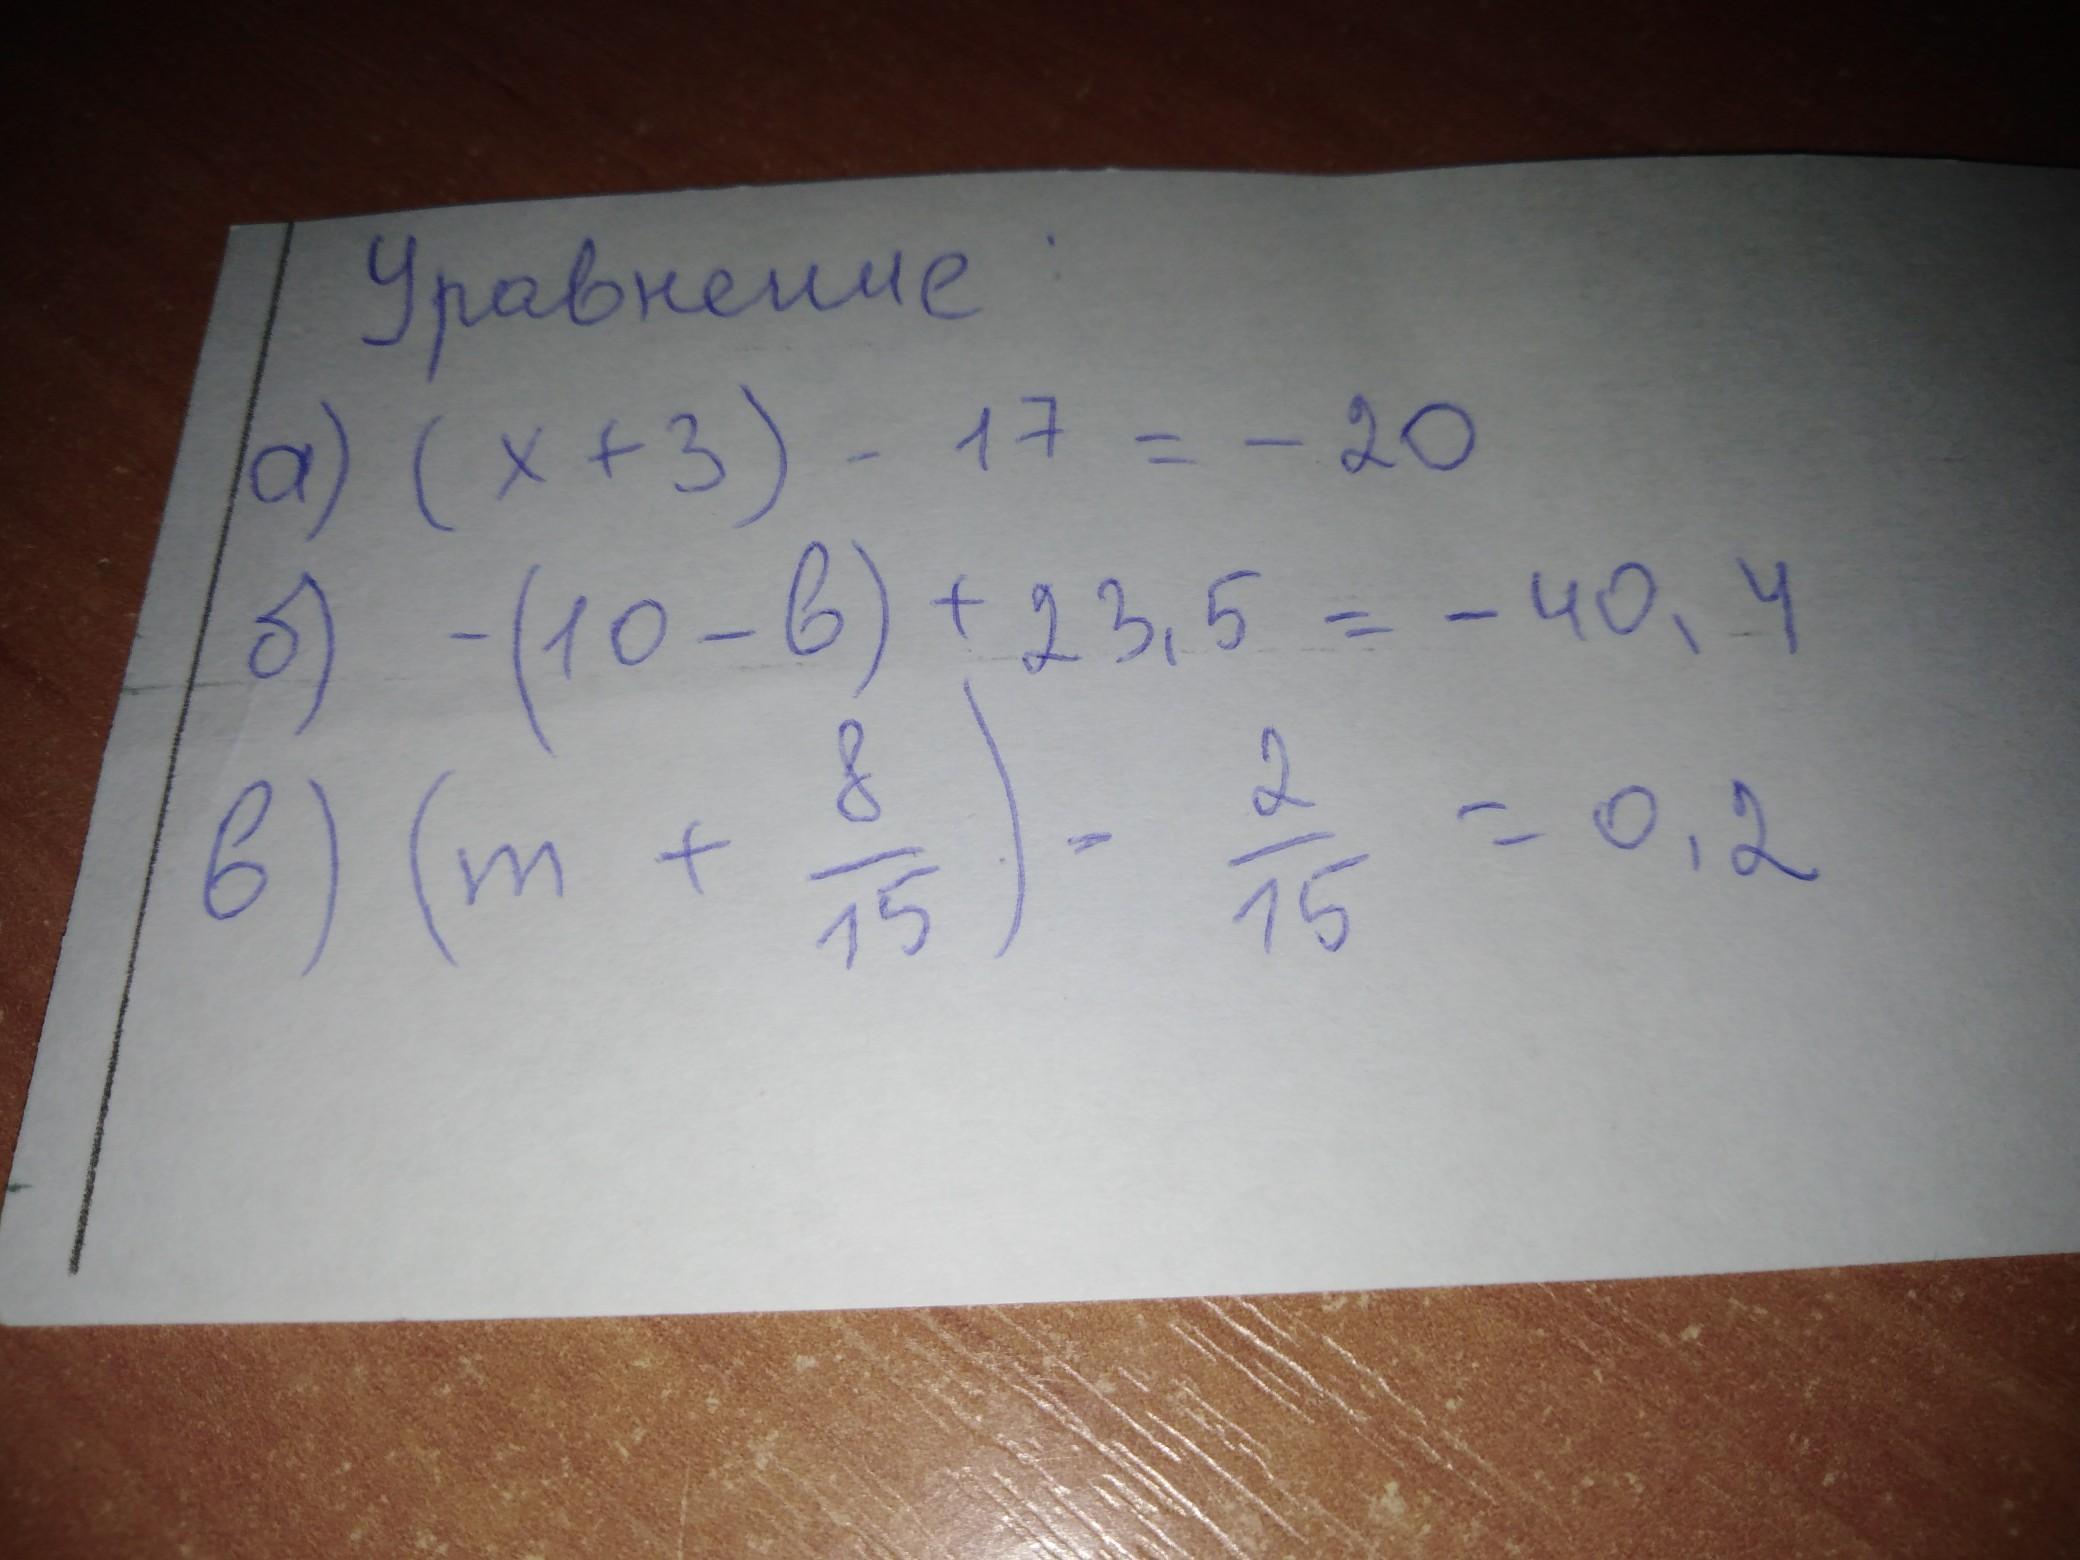 Уравнение:
а) (х + 3) - 17 = - 20
б) -(10 - в) + 23,5 = - 40,4
в) (m + 8/15) - 2/15 = 0,2